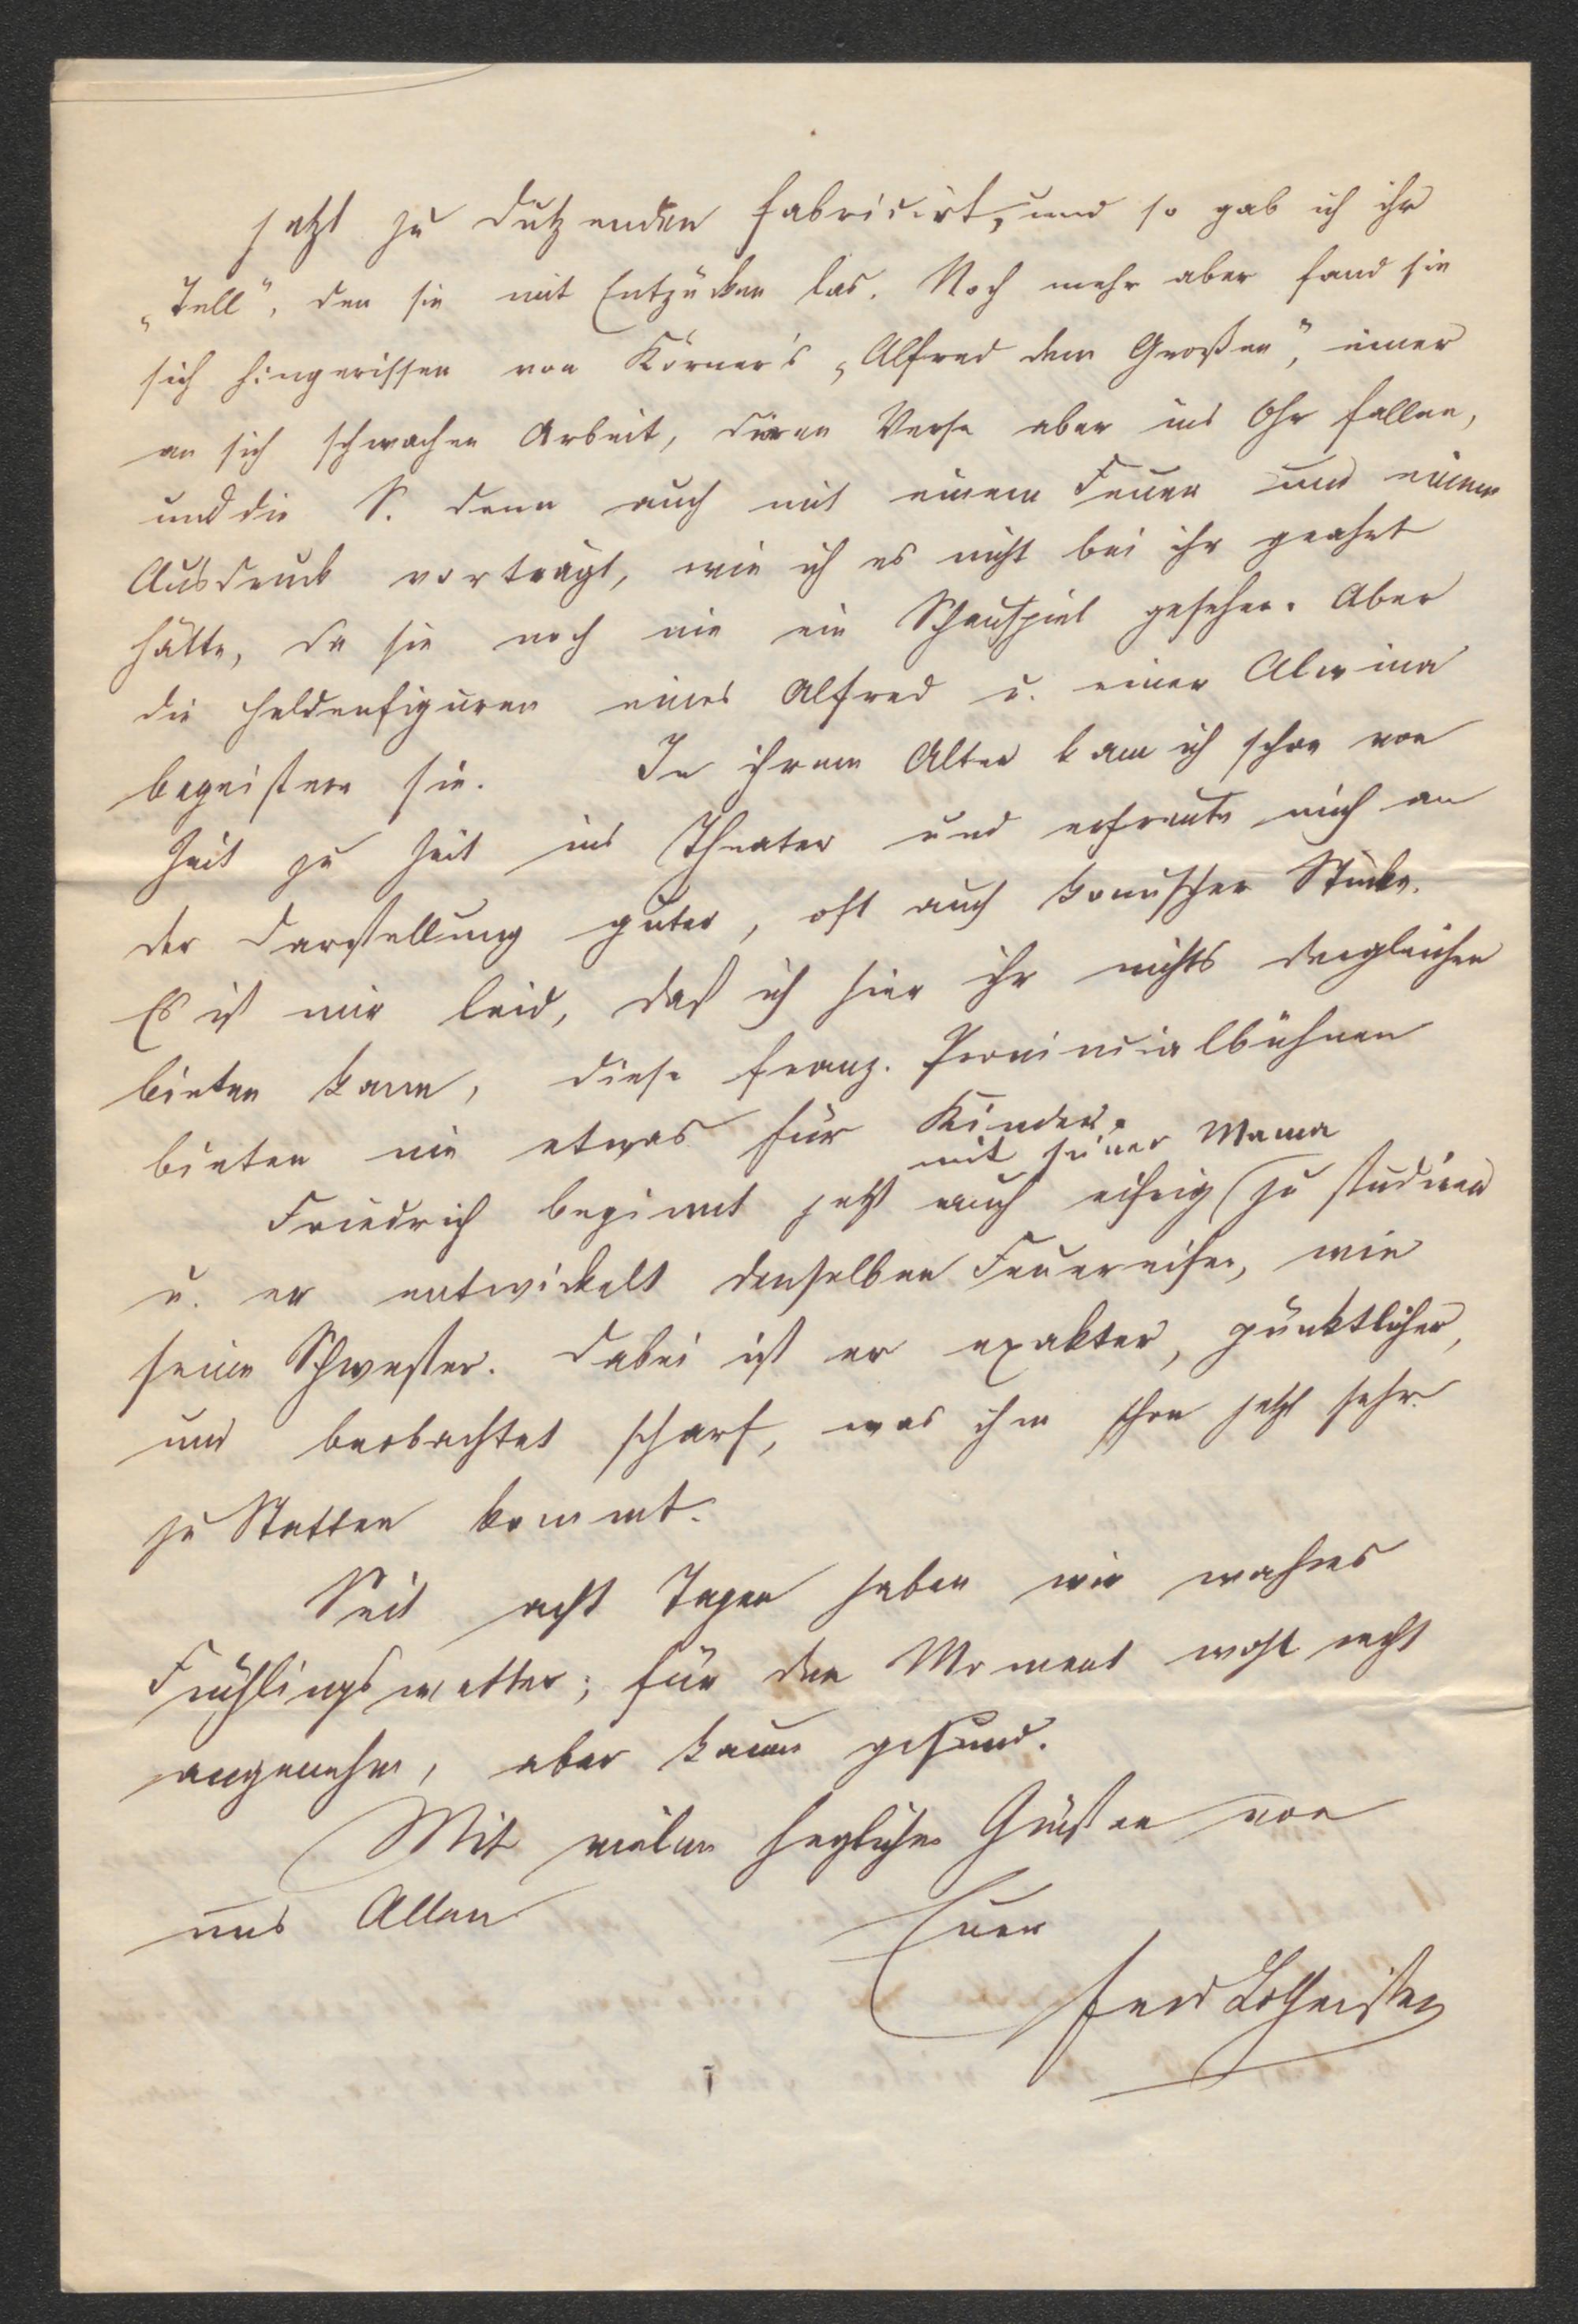 jetzt zu Dutzenden fabricirt, und so gab ich ihr
„Tell", den sie mit Entzücken las. Noch mehr aber fand sie
sich hingerissen von Körner's „Alfred dem Großen", einer
an sich schwachen Arbeit, deren Verse aber ins Ohr fallen,
und die S. denn auch mit einem Feuer und einem
Ausdruck vorträgt, wie ich es nicht bei ihr geahnt
hätte, da sie noch nie ein Schauspiel gesehen. Aber
die Heldenfiguren eines Alfred u. einer Alwina
begeistern sie. In ihrem Alter kam ich schon von
Zeit zu Zeit ins Theater und erfreute mich an
der Darstellung guter, oft auch komischer Stücke.
Es ist mir leid, daß ich hier ihr nichts dergleichen
bieten kann, diese franz. Provincialbühnen
bieten nie etwas für Kinder.
mit seiner Mama
Friedrich beginnt jetzt auch eifrig zu studiren
u. er entwickelt denselben Feuereifer, wie
seine Schwester. Dabei ist er exakter, pünktlicher,
und beobachtet scharf, was ihm schon jetzt sehr
zu Statten kommt.
Seit acht Tagen haben wir wahres
Frühlingswetter; für den Moment wohl recht
angenehm, aber kaum gesund.
Mit vielen herzlichen Grüßen von
uns Allen Euer
Ferd Lotheissen